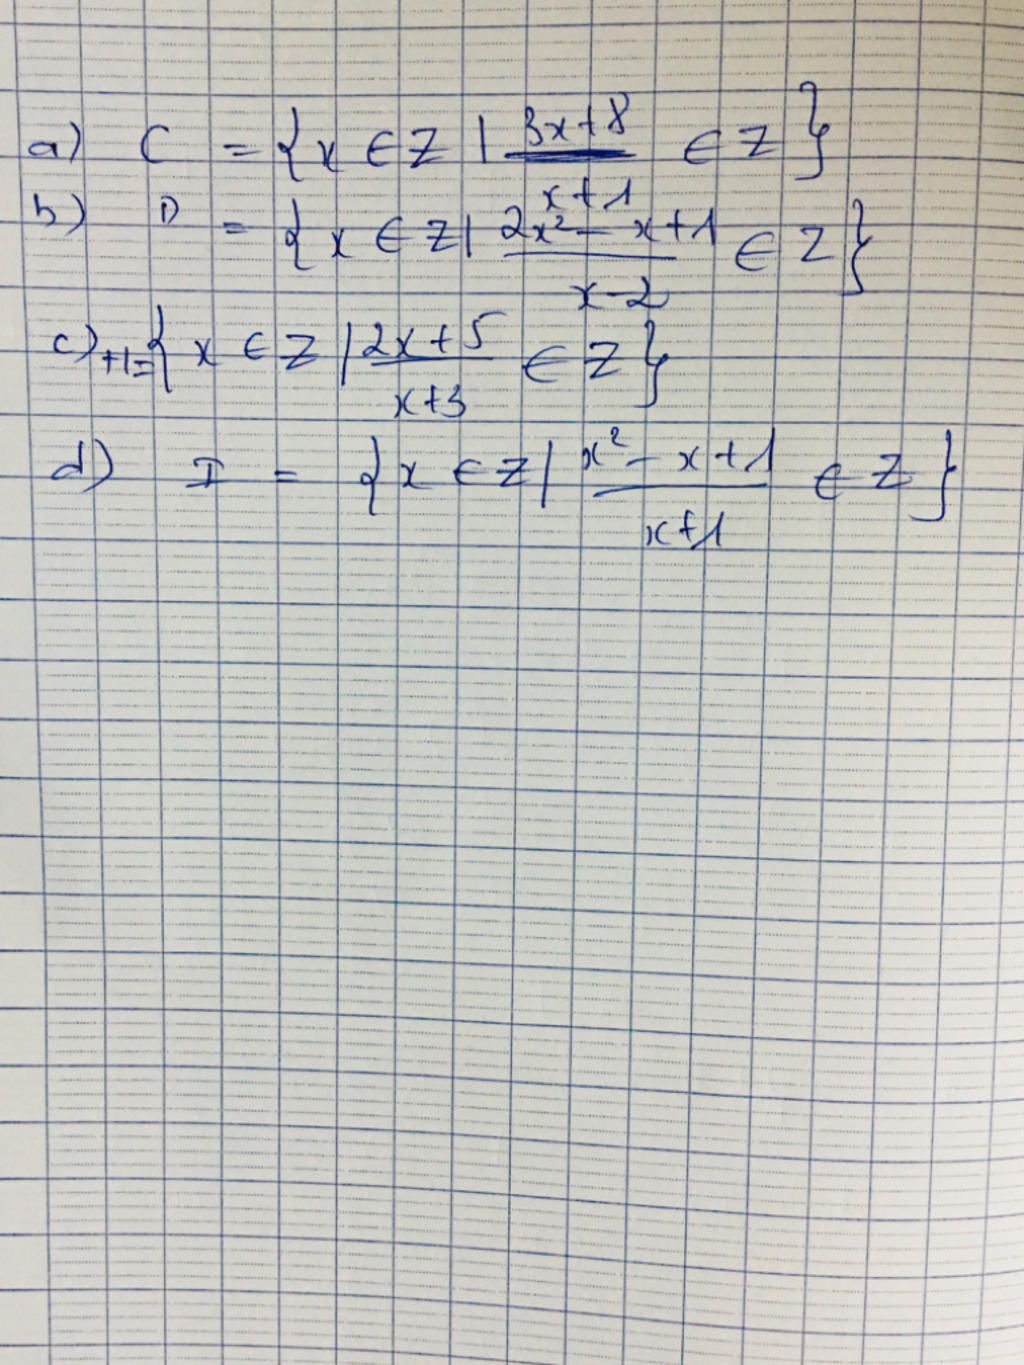 a) C = {x ∈ Z | 3x+8 / x+1 ∈ Z}
b) D = {x ∈ Z | 2x² - x+1 / x-2 ∈ Z}
c) +1= {x ∈ Z | 2x+5 / x+3 ∈ Z}
d) I = {x ∈ Z | x² - x+1 / x+1 ∈ Z}